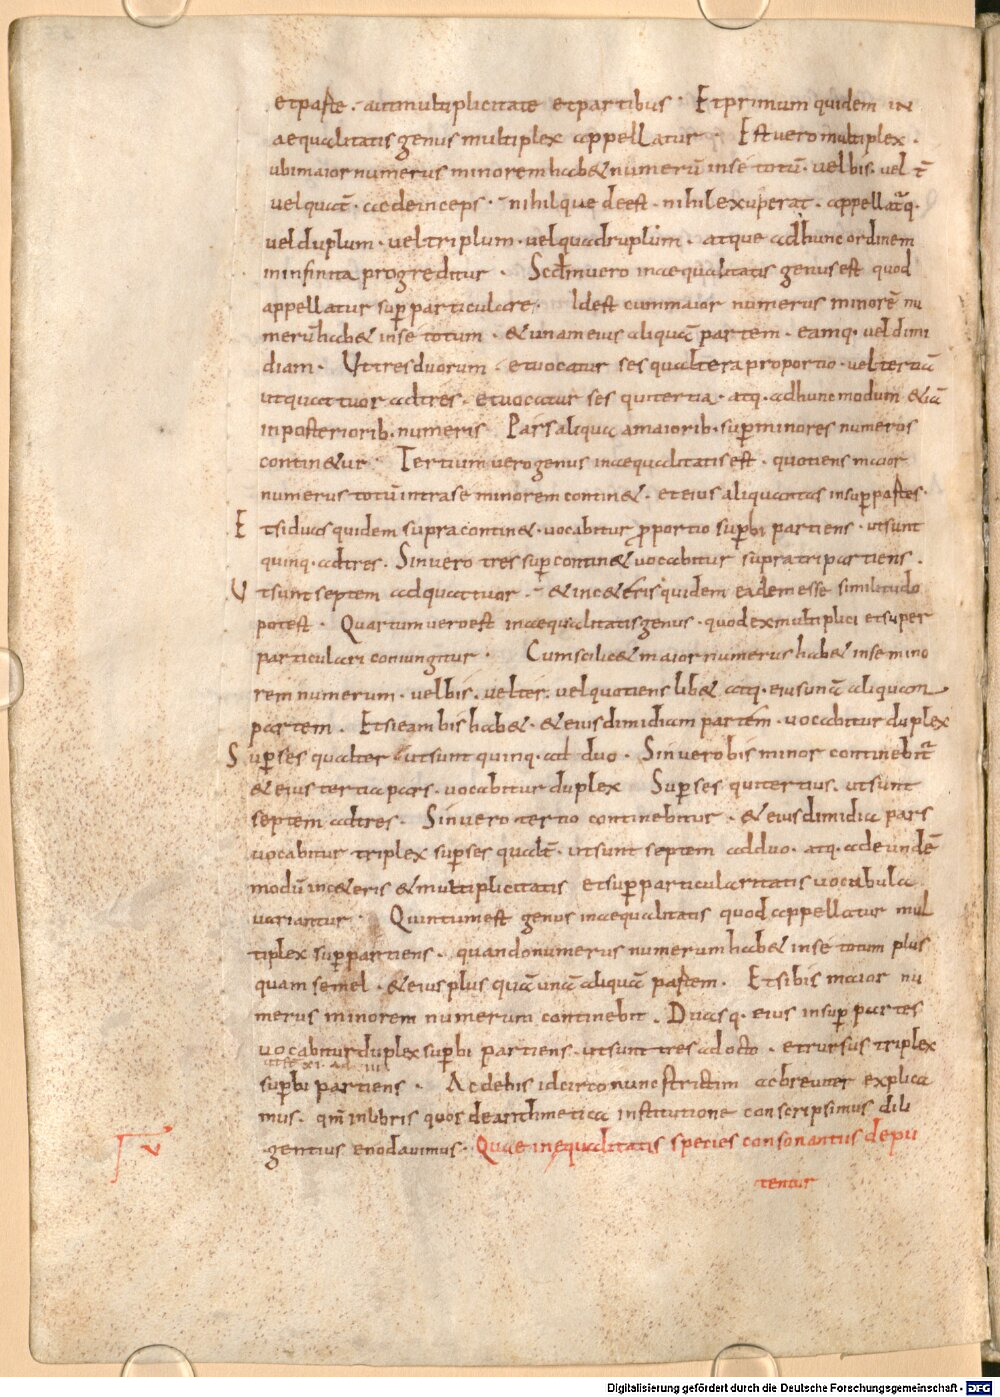 et parte · aut multiplicitate et partibus · Et primum quidem in
aequalitatis genus multiplex appellatur · Est vero multiplex ·
ubi maior numerus minorem habet numerū in se totū · vel bis · vel t̄
vel quat̄ · ac deinceps · nihilque deest · nihil exuperat · appellat᷑q·
vel duplum · vel triplum · vel quadruplum · atque ad hunc ordinem
in infinita progreditur · Scdm̄ vero inaequalitatis genus est quod
appellatur sup̄particulare · Idest cum maior numerus minorē nu
merū habet in se totum · & unam eius aliquā partem · eamq· vel dimi
diam · Ut tres duorum · et vocatur sesqualtera proportio · vel tertiā
ut quattuor ad tres · et vocatur sesquitertia · atq· ad hunc modum &iā
in posteriorib· numeris Pars aliqua a maiorib· sup̄ minores numeros
continetur · Tertium vero genus inaequalitatis est · quotiens maior
numerus totū intra se minorem continet · et eius aliquantas insup̄ partes ·
Et si duas quidem supra continet · vocabitur p̄portio sup̄bi partiens · ut sunt
quinq· ad tres · Sin vero tres sup̄ continet vocabitur supratripartiens ·
Ut sunt septem ad quattuor · & in ceteris quidem eadem esse similitudo
potest · Quartum vero est inaequalitatis genus · quod ex multiplici et super
particulari coniungitur · Cum scilicet maior numerus habet in se mino
rem numerum · vel bis · vel ter · vel quotiens libet atq· eius unā aliquam
partem · Et si eam bis habet · & eius dimidiam partem · vocabitur duplex
Sup̄sesqualter ut sunt quinq· ad duo · Sin vero bis minor continebit᷑
& eius tertia pars · vocabitur duplex Sup̄sesquitertius · ut sunt
septem ad tres · Sin vero tertio continebitur · & eius dimidia pars
vocabitur triplex sup̄sesqualt̄ · ut sunt septem ad duo · atq· ad eundē
modū in ceteris & multiplicitatis et sup̄particularitatis vocabula
variantur · Quintum est genus inaequalitatis quod appellatur mul
tiplex sup̄partiens · quando numerus numerum habet in se totum plus
quam semel · & eius plus quā unā aliquā partem · Et si bis maior nu
merus minorem numerum continebit · Duasq· eius insup̄ partes
vocabitur duplex sup̄bi partiens · ut sunt tres ad octo · et rursus triplex
ut st xi · ad · iii
sup̄bi partiens · Ac de his idcirco nunc strictim ac breviter explica
mus · qm̄ in libris quos de arithmetica institutione conscripsimus dili
gentius enodavimus · Quae inequalitatis species consonantiis depu
tentur
V